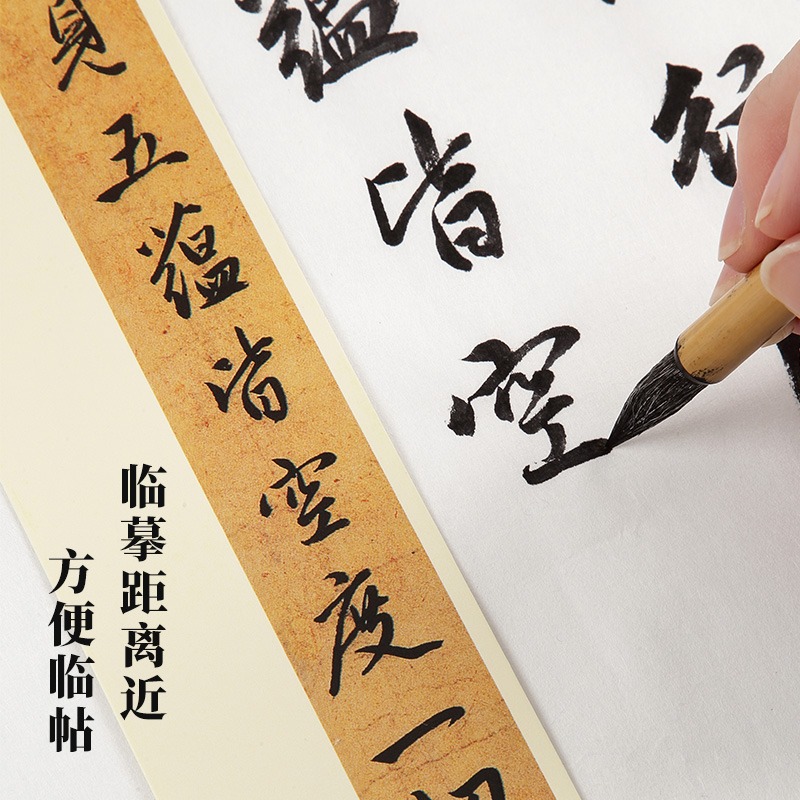 蘊皆空
見五蘊皆空度一
临摹距离近
方便临帖